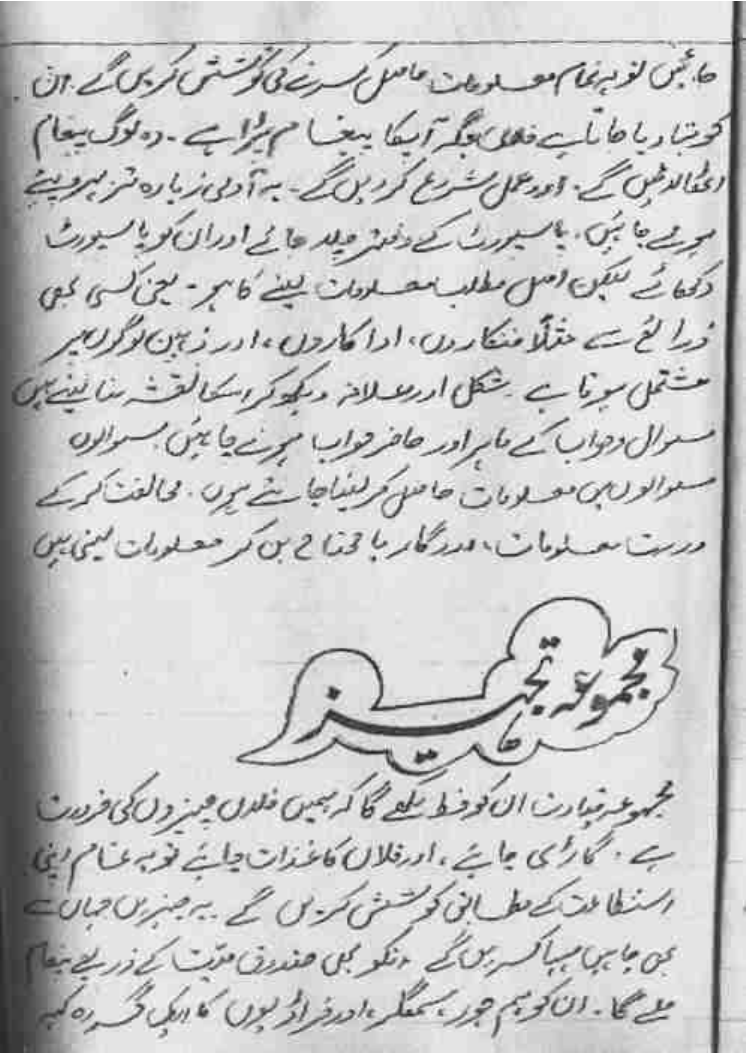 جائیں تو یہ تمام معلومات حاصل کرنے کی کوشش کریں گے۔ ان
کو بتا دیا جاتا ہے فلاں جگہ آپکا پیغام پڑا ہے۔ وہ لوگ پیغام
اٹھا لیں گے۔ اور عمل شروع کر دیں گے۔ یہ آدمی زیادہ تر
ہونے چاہئیں۔ پاسپورٹ کے دفتر چلا جائے اور ان کو پاسپورٹ
دکھائے لیکن اصل مطلب معلومات لینے کا ہو۔ یعنی کسی بھی
ذرائع سے مثلاً فنکاروں، اداکاروں، اور ذہین لوگوں پر
مشتمل ہوتا ہے۔ شکل اور علاقہ دیکھ کر اسکا نقشہ بنا لیتے ہیں
سوال وجواب کے ماہر اور حاضر جواب ہونے چاہئیں سوالوں
سوالوں میں معلومات حاصل کر لینا جانتے ہوں۔ مخالفت کر کے
درست معلومات، مددگار یا محتاج بن کر معلومات لینی ہیں
مجموعہ تجہیزات
مجموعہ قیادت ان کو خط لکھے گا کہ ہمیں فلاں چیزوں کی ضرورت
ہے۔ گاڑی چاہئے، اور فلاں کاغذات چاہئے تو یہ تمام اپنی
استطاعت کے مطابق کوشش کریں گے۔ یہ چیزیں جہاں سے
بھی چاہیں مہیا کریں گے انکو بھی صندوق میت کے ذریعے پیغام
ملے گا۔ ان کو ہم چور، سمگلر، اور فراڈیوں کا ایک گروہ کہہ